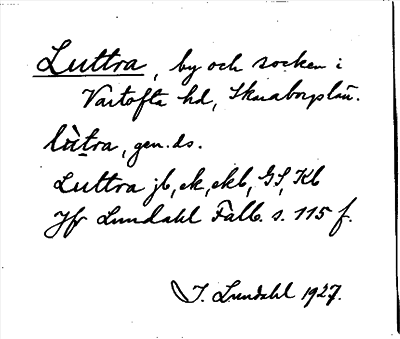 Luttra, by och socken i
Vartofta hd, Skaraborgs län.
lùtra, gen. ds.
Luttra jb, ek, ekb, GS, Kb
Jfr Lundahl Falb. s. 115 f.
I. Lundahl 1927.